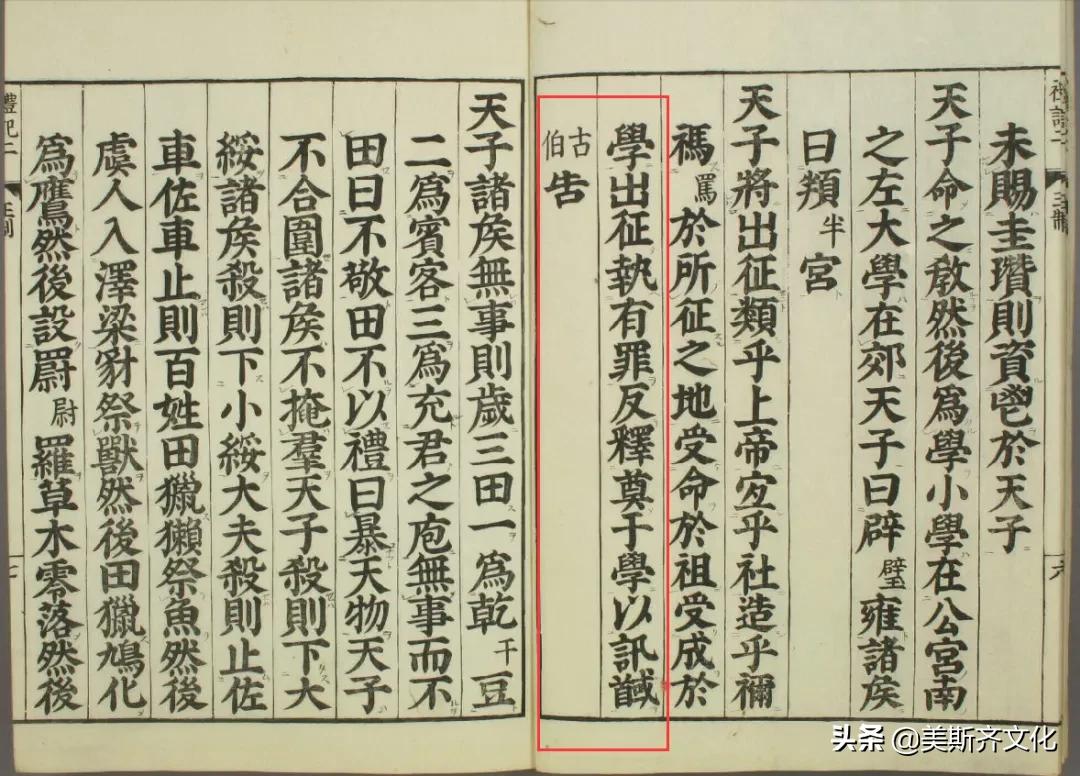 未賜圭瓚則資鬯於天子
天子命之敎然後爲學小學在公宮南
之左大學在郊天子曰辟璧雍諸侯
曰頖半宮
天子將出征類乎上帝宜乎社造乎禰
禡罵於所征之地受命於祖受成於
學出征執有罪反釋奠于學以訊馘
古伯告
天子諸侯無事則歲三田一爲乾干豆
二爲賓客三爲充君之庖無事而不
田曰不敬田不以禮曰暴天物天子
不合圍諸侯不掩羣天子殺則下大
綏諸侯殺則下小綏大夫殺則止佐
車佐車止則百姓田獵獺祭魚然後
虞人入澤梁豺祭獸然後田獵鳩化
爲鷹然後設罻尉羅草木零落然後
禮記二
头条 @美斯齐文化